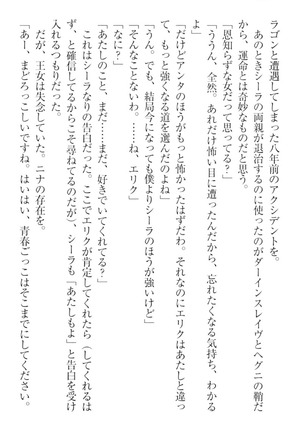 ラゴンと遭遇してしまった八年前のアクシデントを。
あのときシーラの両親が退治するのに使ったのがダーインスレイヴとヘグニの鞘だ
から、運命とは奇妙なものだと思う。
「恩知らずな女だって思ってる?」
「ううん、全然。あれだけ怖い目に遭ったんだから、忘れたくなる気持ち、わかる
よ」
「だけどアンタのほうがもっと怖かったはずだわ。それなのにエリクはあたしと違っ
て、もっと強くなる道を選んだのよね」
「うん。でも、結局今になっても僕よりシーラのほうが強いけど」
「そんなことないわ。……ね、エリク」
「なに?」
「あたしのこと、まだ……まだ、好きでいてくれてる?」
これはシーラなりの告白だった。ここでエリクが肯定してくれたら（してくれるは
ずと確信してるからこそ尋ねてるのだが）、シーラも「あたしもよ」と告白を受け
入れるつもりだった。
だが、王女は失念していた。ニナの存在を。
「あー、まどろっこしいですね。はいはい、青春ごっこはそこまでにしてください。